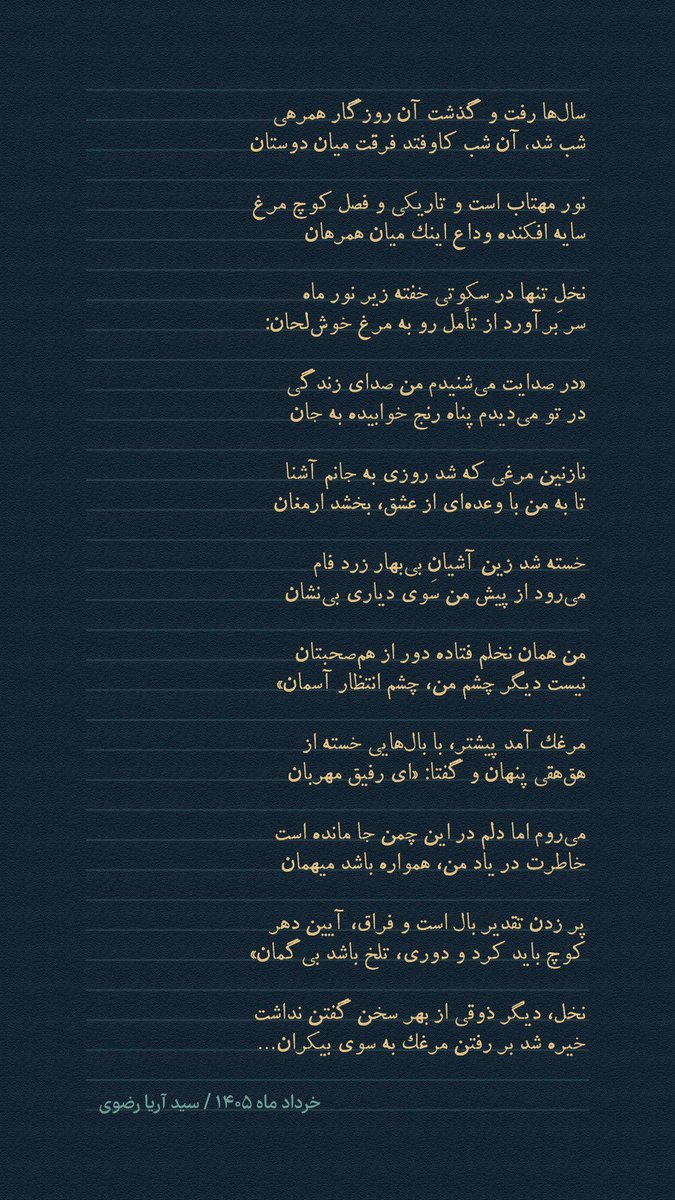 سال‌ها رفت و گذشت آن روزگار همرهی
شب شد، آن شب کاوفتد فرقت میان دوستان
نور مهتاب است و تاریکی و فصل کوچ مرغ
سایه افکنده وداع اینك میان همرهان
نخلِ تنها در سکوتی خفته زیر نور ماه
سر بَرآورد از تأمل رو به مرغ خوش‌لحان:
«در صدایت می‌شنیدم من صدای زندگی
در تو می‌دیدم پناه رنج خوابیده به جان
نازنین مرغی که شد روزی به جانم آشنا
تا به من با وعده‌ای از عشق، بخشد ارمغان
خسته شد زین آشیانِ بی‌بهار زرد فام
می‌رود از پیش من سَوی دیاری بی‌نشان
من همان نخلم فتاده دور از هم‌صحبتان
نیست دیگر چشم من، چشم انتظار آسمان»
مرغك آمد پیشتر، با بال‌هایی خسته از
هق‌هقی پنهان و گفتا: «ای رفیق مهربان
می‌روم اما دلم در این چمن جا مانده است
خاطرت در یاد من، همواره باشد میهمان
پر زدن تقدیر بال است و فراق، آیین دهر
کوچ باید کرد و دوری، تلخ باشد بی‌گمان»
نخل، دیگر ذوقی از بهر سخن گفتن نداشت
خیره شد بر رفتن مرغك به سوی بیکران...
خرداد ماه ۱۴۰۵ / سید آریا رضوی